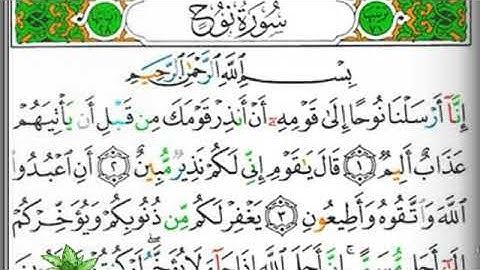 سُورَةُ نُوحٍ
بِسْمِ اللَّهِ الرَّحْمَٰنِ الرَّحِيمِ
إِنَّآ أَرْسَلْنَا نُوحًا إِلَىٰ قَوْمِهِۦٓ أَنْ أَنذِرْ قَوْمَكَ مِن قَبْلِ أَن يَأْتِيَهُمْ
عَذَابٌ أَلِيمٌ ١ قَالَ يَٰقَوْمِ إِنِّى لَكُمْ نَذِيرٌ مُّبِينٌ ٢ أَنِ ٱعْبُدُوا۟
ٱللَّهَ وَٱتَّقُوهُ وَأَطِيعُونِ ٣ يَغْفِرْ لَكُم مِّن ذُنُوبِكُمْ وَيُؤَخِّرْكُمْ
إِلَىٰٓ أَجَلٍ مُّسَمًّى إِنَّ أَجَلَ ٱللَّهِ إِذَا جَآءَ لَا يُؤَخَّرُ لَوْ كُنتُمْ